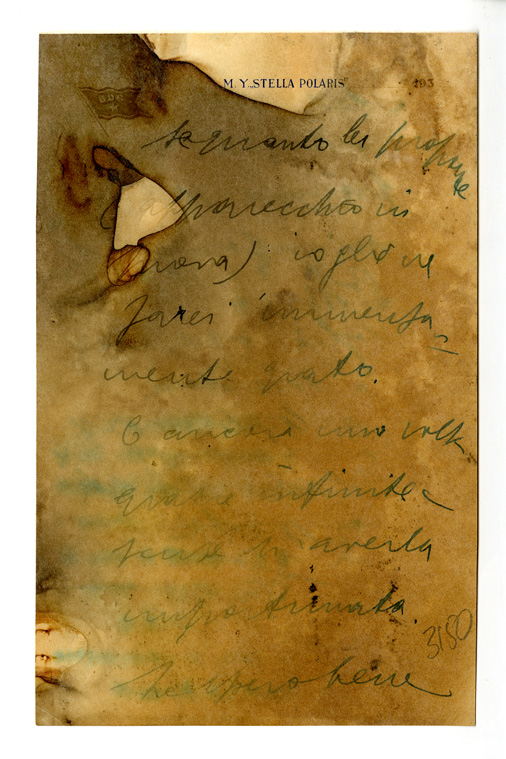 M. Y. "STELLA POLARIS" 193
se quanto lei propone
(apparecchio in
prova) voglio ne
farei immensa=
mente grato.
E ancora una volta
grazie infinite e
scuse di averla
importunata.
3180
bene